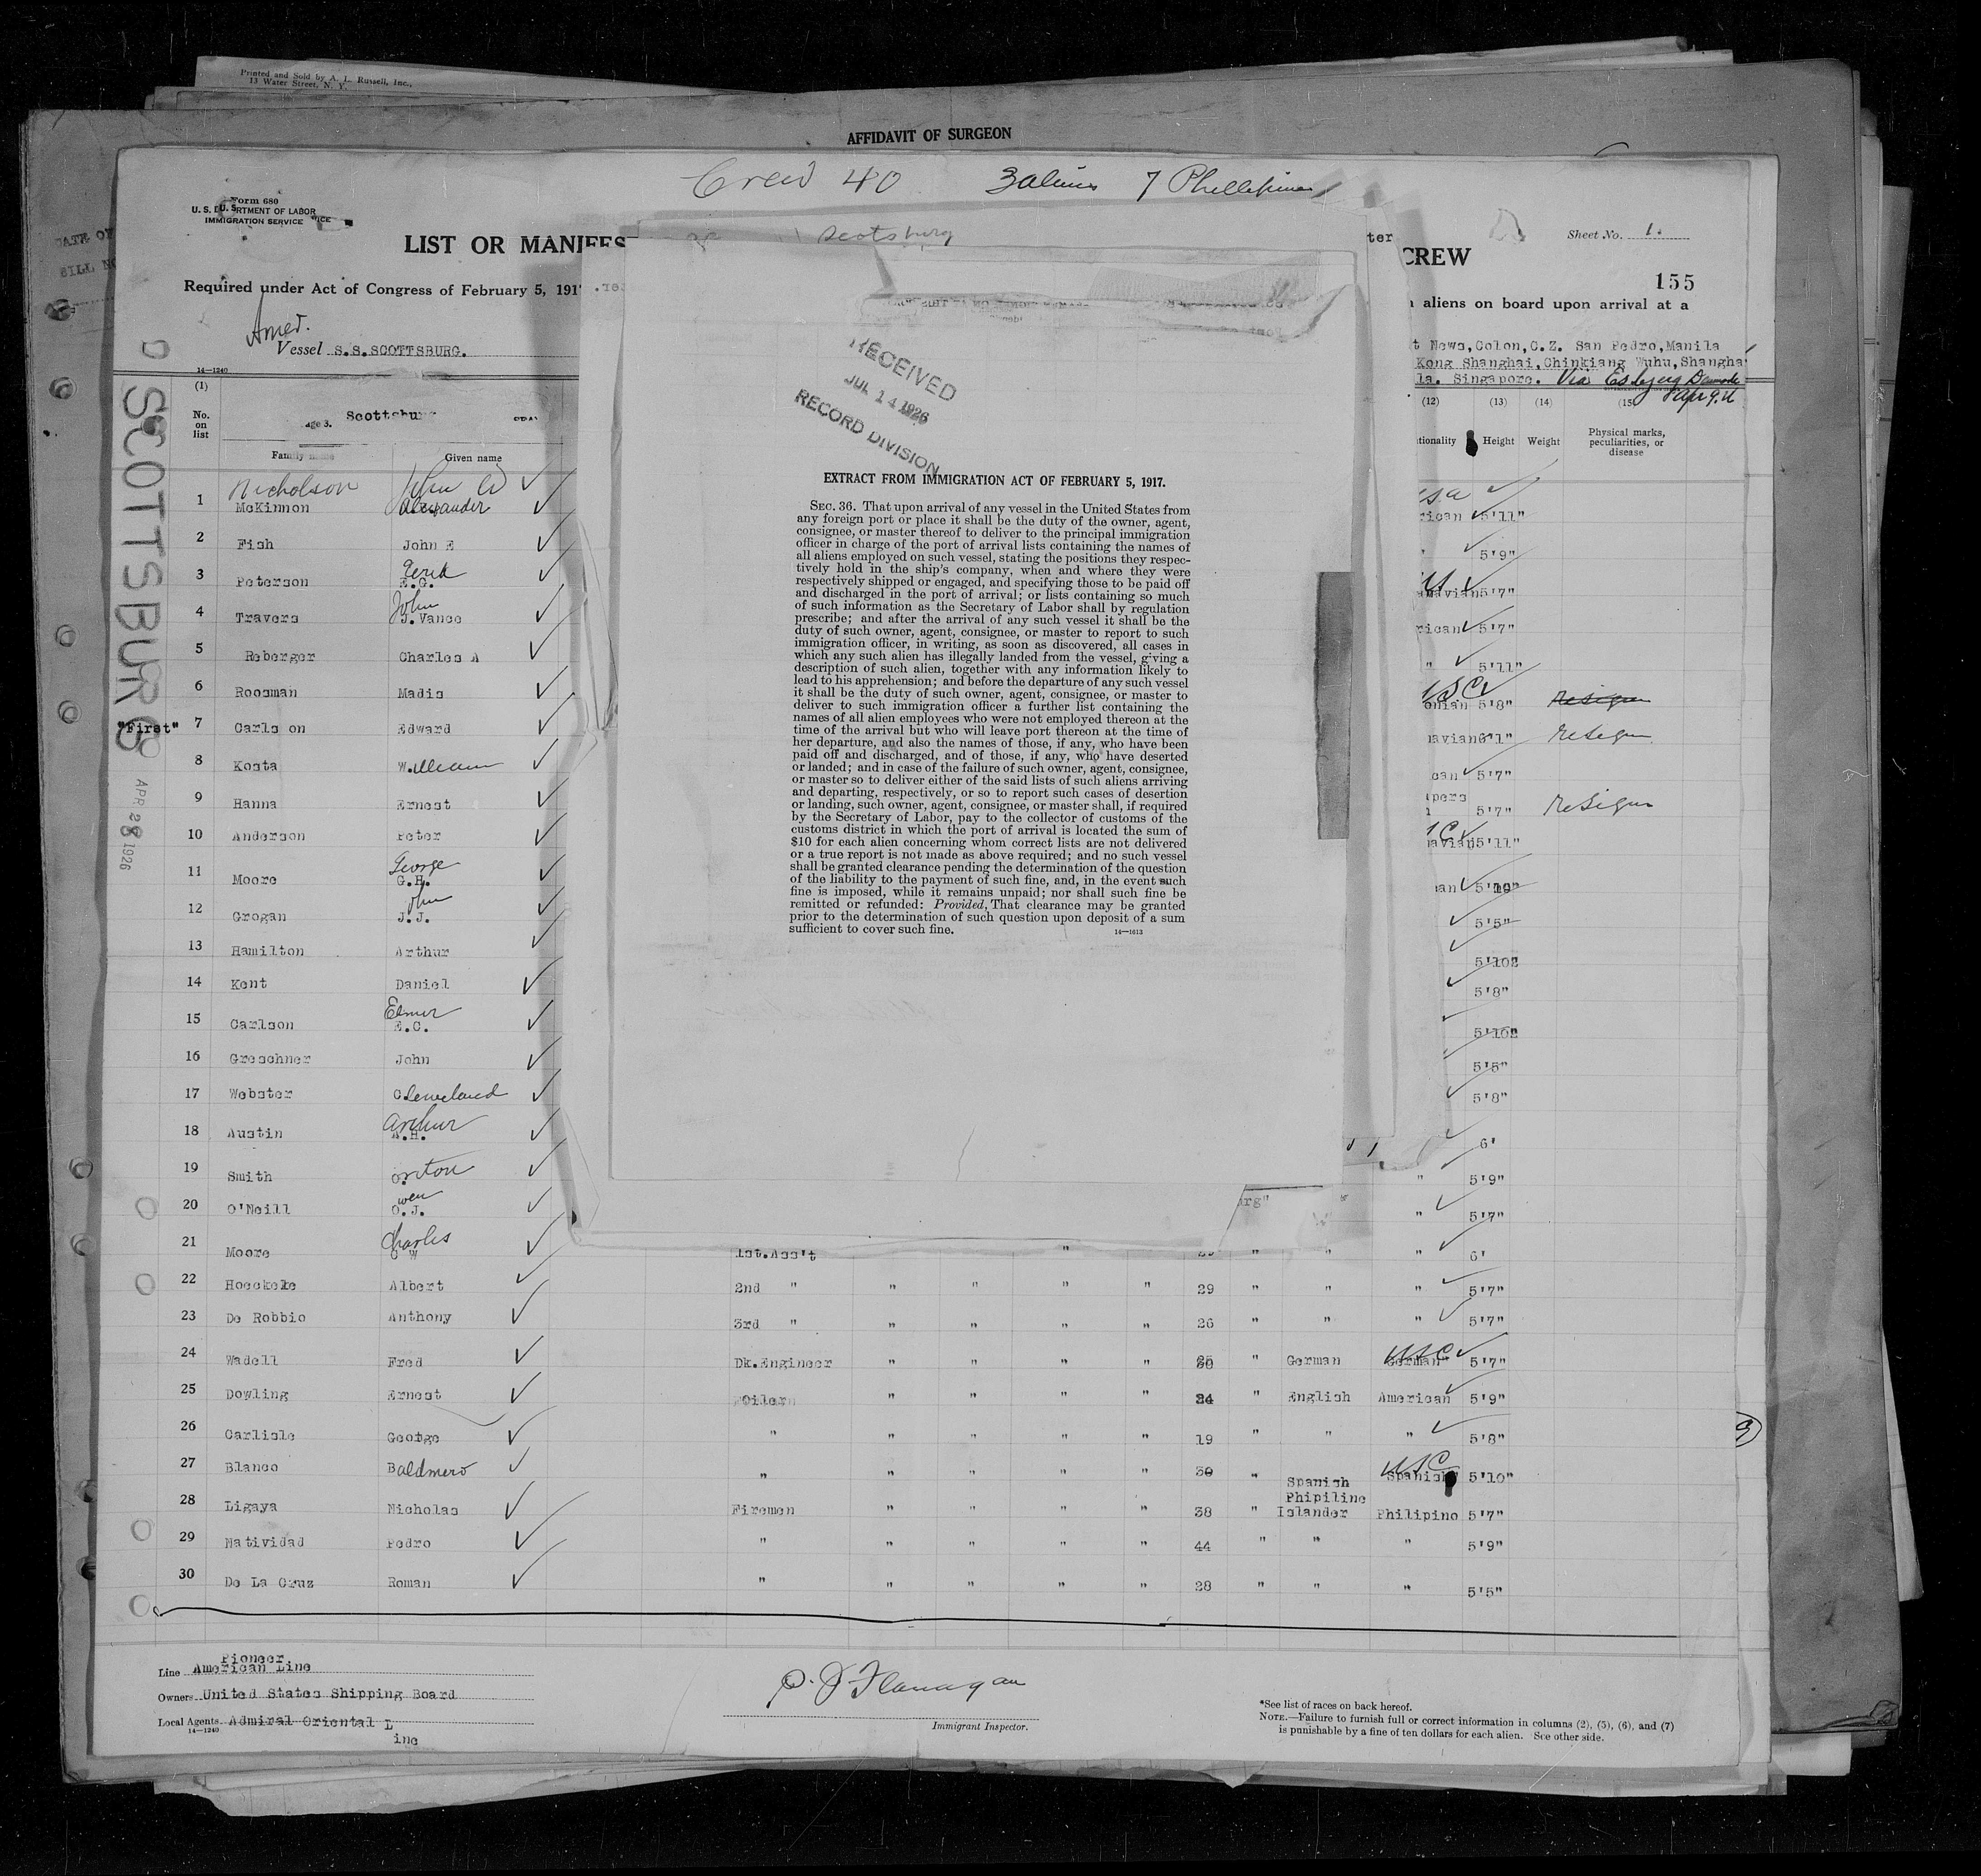 Printed and Sold by A. L. Russell, Inc.,
13 Water Street, N. Y.
AFFIDAVIT OF SURGEON
Crew 40 3 aliens 7 Phillipines
Form 680
IMMIGRATION SERVICE
LIST OR MANIFES
Scotsburg
CREW
Sheet No. 1.
155
Required under Act of Congress of February 5, 191
aliens on board upon arrival at a
Amer.
Vessel S.S.SCOTTSBURG.
t News,Colon,C.Z. San Pedro,Manila
Kong Shanghai,Chinkiang Wuhu,Shangha
la. Singapore. Via Esbjerg Denmark
Apr 9.26
14—1240
SCOTTSBURG
APR 28 1926
RECEIVED
JUL 14 1926
RECORD DIVISION
(1) (12) (13) (14) (15)
No. on list
Scottsbur
age 3.
Family name Given name
tionality Height Weight Physical marks, peculiarities, or disease
Nicholson John W
1 McKinnon Alexander rican 5'11"
2 Fish John E " 5'9"
3 Peterson E.G. 5'7"
4 Travers John J.Vance rican 5'7"
5 Reberger Charles A " 5'11"
6 Roosman Madis USC onian 5'8" resign
"First" 7 Carlson Edward avian 6'1" resign
8 Kosta William can 5'7"
9 Hanna Ernest pers 5'7" resign
10 Anderson Peter avian 5'11"
11 Moore George G.H. an 5'10"
12 Grogan John J.J. 5'5"
13 Hamilton Arthur
14 Kent Daniel 5'8"
15 Carlson Elmer E.C.
16 Greschner John 5'5"
17 Webster Cleveland 5'8"
18 Austin Arthur A.H. 6'
19 Smith Orton " 5'9"
20 O'Neill Owen O.J. " 5'7"
21 Moore Charles C W 1st.Ass't " " " " 6'
22 Hoeckele Albert 2nd " " " " " 29 " " " 5'7"
23 De Robbio Anthony 3rd " " " " " 26 " " " 5'7"
24 Wadell Fred Dk.Engineer " " " " 30 " German USC German 5'7"
25 Dowling Ernest Oiler " " " " 24 " English American 5'9"
26 Carlisle George " " " " " 19 " " " 5'8"
27 Blanco Baldmero " " " " " 30 " Spanish USC Spanish 5'10"
28 Ligaya Nicholas Firemen " " " " 38 " Phipiline Islander Philipino 5'7"
29 Natividad Pedro " " " " " 44 " " " 5'9"
30 De La Cruz Roman " " " " " 28 " " " 5'5"
EXTRACT FROM IMMIGRATION ACT OF FEBRUARY 5, 1917.
SEC. 36. That upon arrival of any vessel in the United States from
any foreign port or place it shall be the duty of the owner, agent,
consignee, or master thereof to deliver to the principal immigration
officer in charge of the port of arrival lists containing the names of
all aliens employed on such vessel, stating the positions they respec-
tively hold in the ship's company, when and where they were
respectively shipped or engaged, and specifying those to be paid off
and discharged in the port of arrival; or lists containing so much
of such information as the Secretary of Labor shall by regulation
prescribe; and after the arrival of any such vessel it shall be the
duty of such owner, agent, consignee, or master to report to such
immigration officer, in writing, as soon as discovered, all cases in
which any such alien has illegally landed from the vessel, giving a
description of such alien, together with any information likely to
lead to his apprehension; and before the departure of any such vessel
it shall be the duty of such owner, agent, consignee, or master to
deliver to such immigration officer a further list containing the
names of all alien employees who were not employed thereon at the
time of the arrival but who will leave port thereon at the time of
her departure, and also the names of those, if any, who have been
paid off and discharged, and of those, if any, who have deserted
or landed; and in case of the failure of such owner, agent, consignee,
or master so to deliver either of the said lists of such aliens arriving
and departing, respectively, or so to report such cases of desertion
or landing, such owner, agent, consignee, or master shall, if required
by the Secretary of Labor, pay to the collector of customs of the
customs district in which the port of arrival is located the sum of
$10 for each alien concerning whom correct lists are not delivered
or a true report is not made as above required; and no such vessel
shall be granted clearance pending the determination of the question
of the liability to the payment of such fine, and, in the event such
fine is imposed, while it remains unpaid; nor shall such fine be
remitted or refunded: Provided, That clearance may be granted
prior to the determination of such question upon deposit of a sum
sufficient to cover such fine.
14—1613
Pioneer
Line American Line
Owners United States Shipping Board
Local Agents Admiral Oriental L
ine
14—1240
P. J Flanagan
Immigrant Inspector.
*See list of races on back hereof.
NOTE.—Failure to furnish full or correct information in columns (2), (5), (6), and (7)
is punishable by a fine of ten dollars for each alien. See other side.